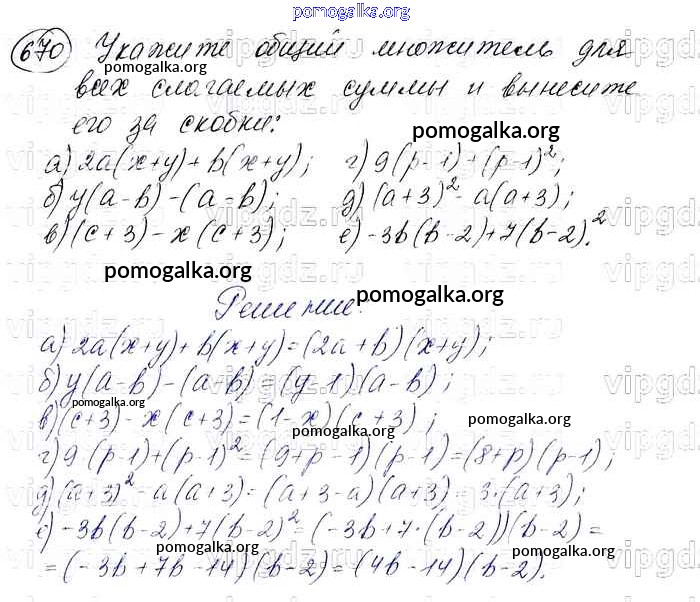 pomogalka.org
670 Укажите общий множитель для
pomogalka.org
всех слагаемых суммы и вынесите
его за скобки:
pomogalka.org
а) 2a(x+y)+b(x+y); г) 9(p-1)+(p-1)²;
б) y(a-b)-(a-b); д) (a+3)²-a(a+3);
в) (c+3)-x(c+3); е) -3b(b-2)+7(b-2)².
pomogalka.org
Решение:
pomogalka.org
а) 2a(x+y)+b(x+y)=(2a+b)(x+y);
б) y(a-b)-(a-b)=(y-1)(a-b);
pomogalka.org
в) (c+3)-x(c+3)=(1-x)(c+3);
pomogalka.org
pomogalka.org
г) 9(p-1)+(p-1)²=(9+p-1)(p-1)=(8+p)(p-1);
д) (a+3)²-a(a+3)=(a+3-a)(a+3)=3·(a+3);
е) -3b(b-2)+7(b-2)²=(-3b+7·(b-2))(b-2)=
pomogalka.org
pomogalka.org
=(-3b+7b-14)(b-2)=(4b-14)(b-2).
pomogalka.org